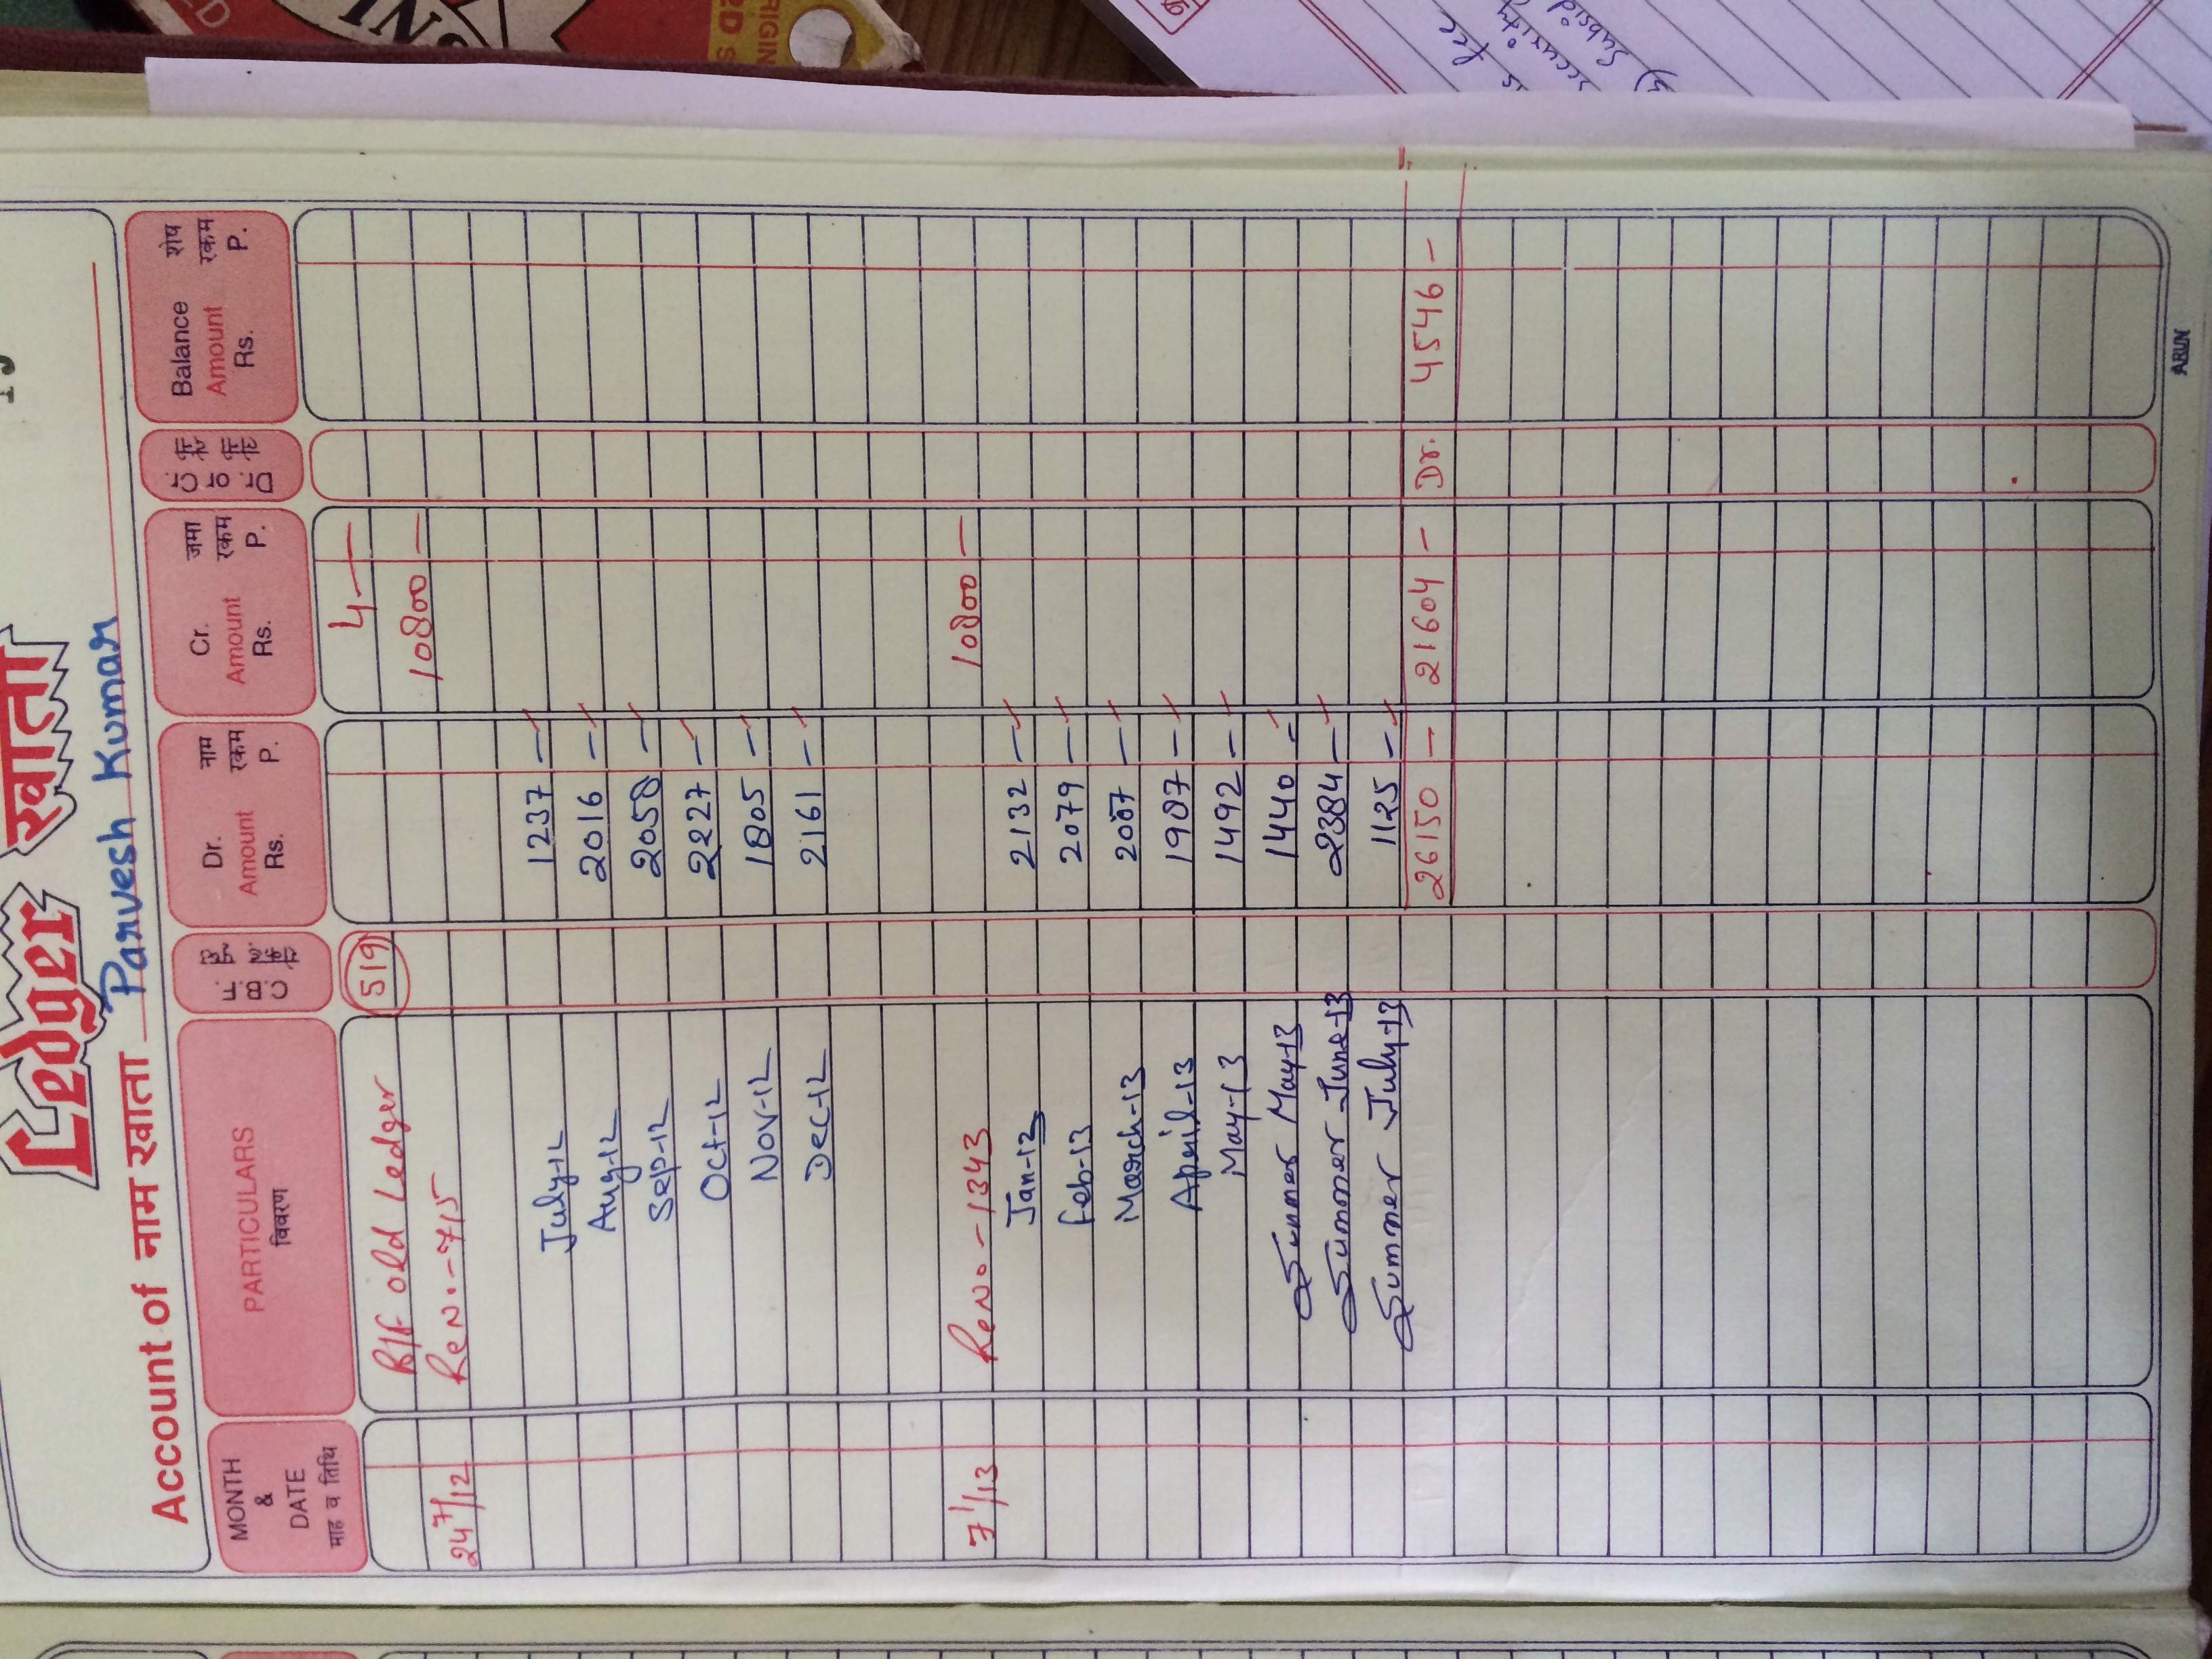 Ledger खाता
Account of नाम खाता Parvesh Kumar
MONTH & DATE माह व तिथि PARTICULARS विवरण C.B.F. रोकड़ पृष्ठ Dr. Amount Rs. नाम रकम P. Cr. Amount Rs. जमा रकम P. Dr. or Cr. लेनी देनी Balance Amount Rs. शेष रकम P.
B/F old Ledger 519 4 —
24 7/12 ReN. - 715 10800 —
July-12 1237 —
Aug-12 2016 —
Sep-12 2058 —
Oct-12 2227 —
Nov-12 1805 —
Dec-12 2161 —
7 1/13 ReNo - 1343 10800 —
Jan-13 2132 —
Feb-13 2079 —
March-13 2087 —
April-13 1987 —
May-13 1492 —
Summer May-13 1440 —
Summer June-13 2384 —
Summer July-13 1125 —
26150 — 21604 — Dr. 4546 —
ARUN
s fee
security
subsid